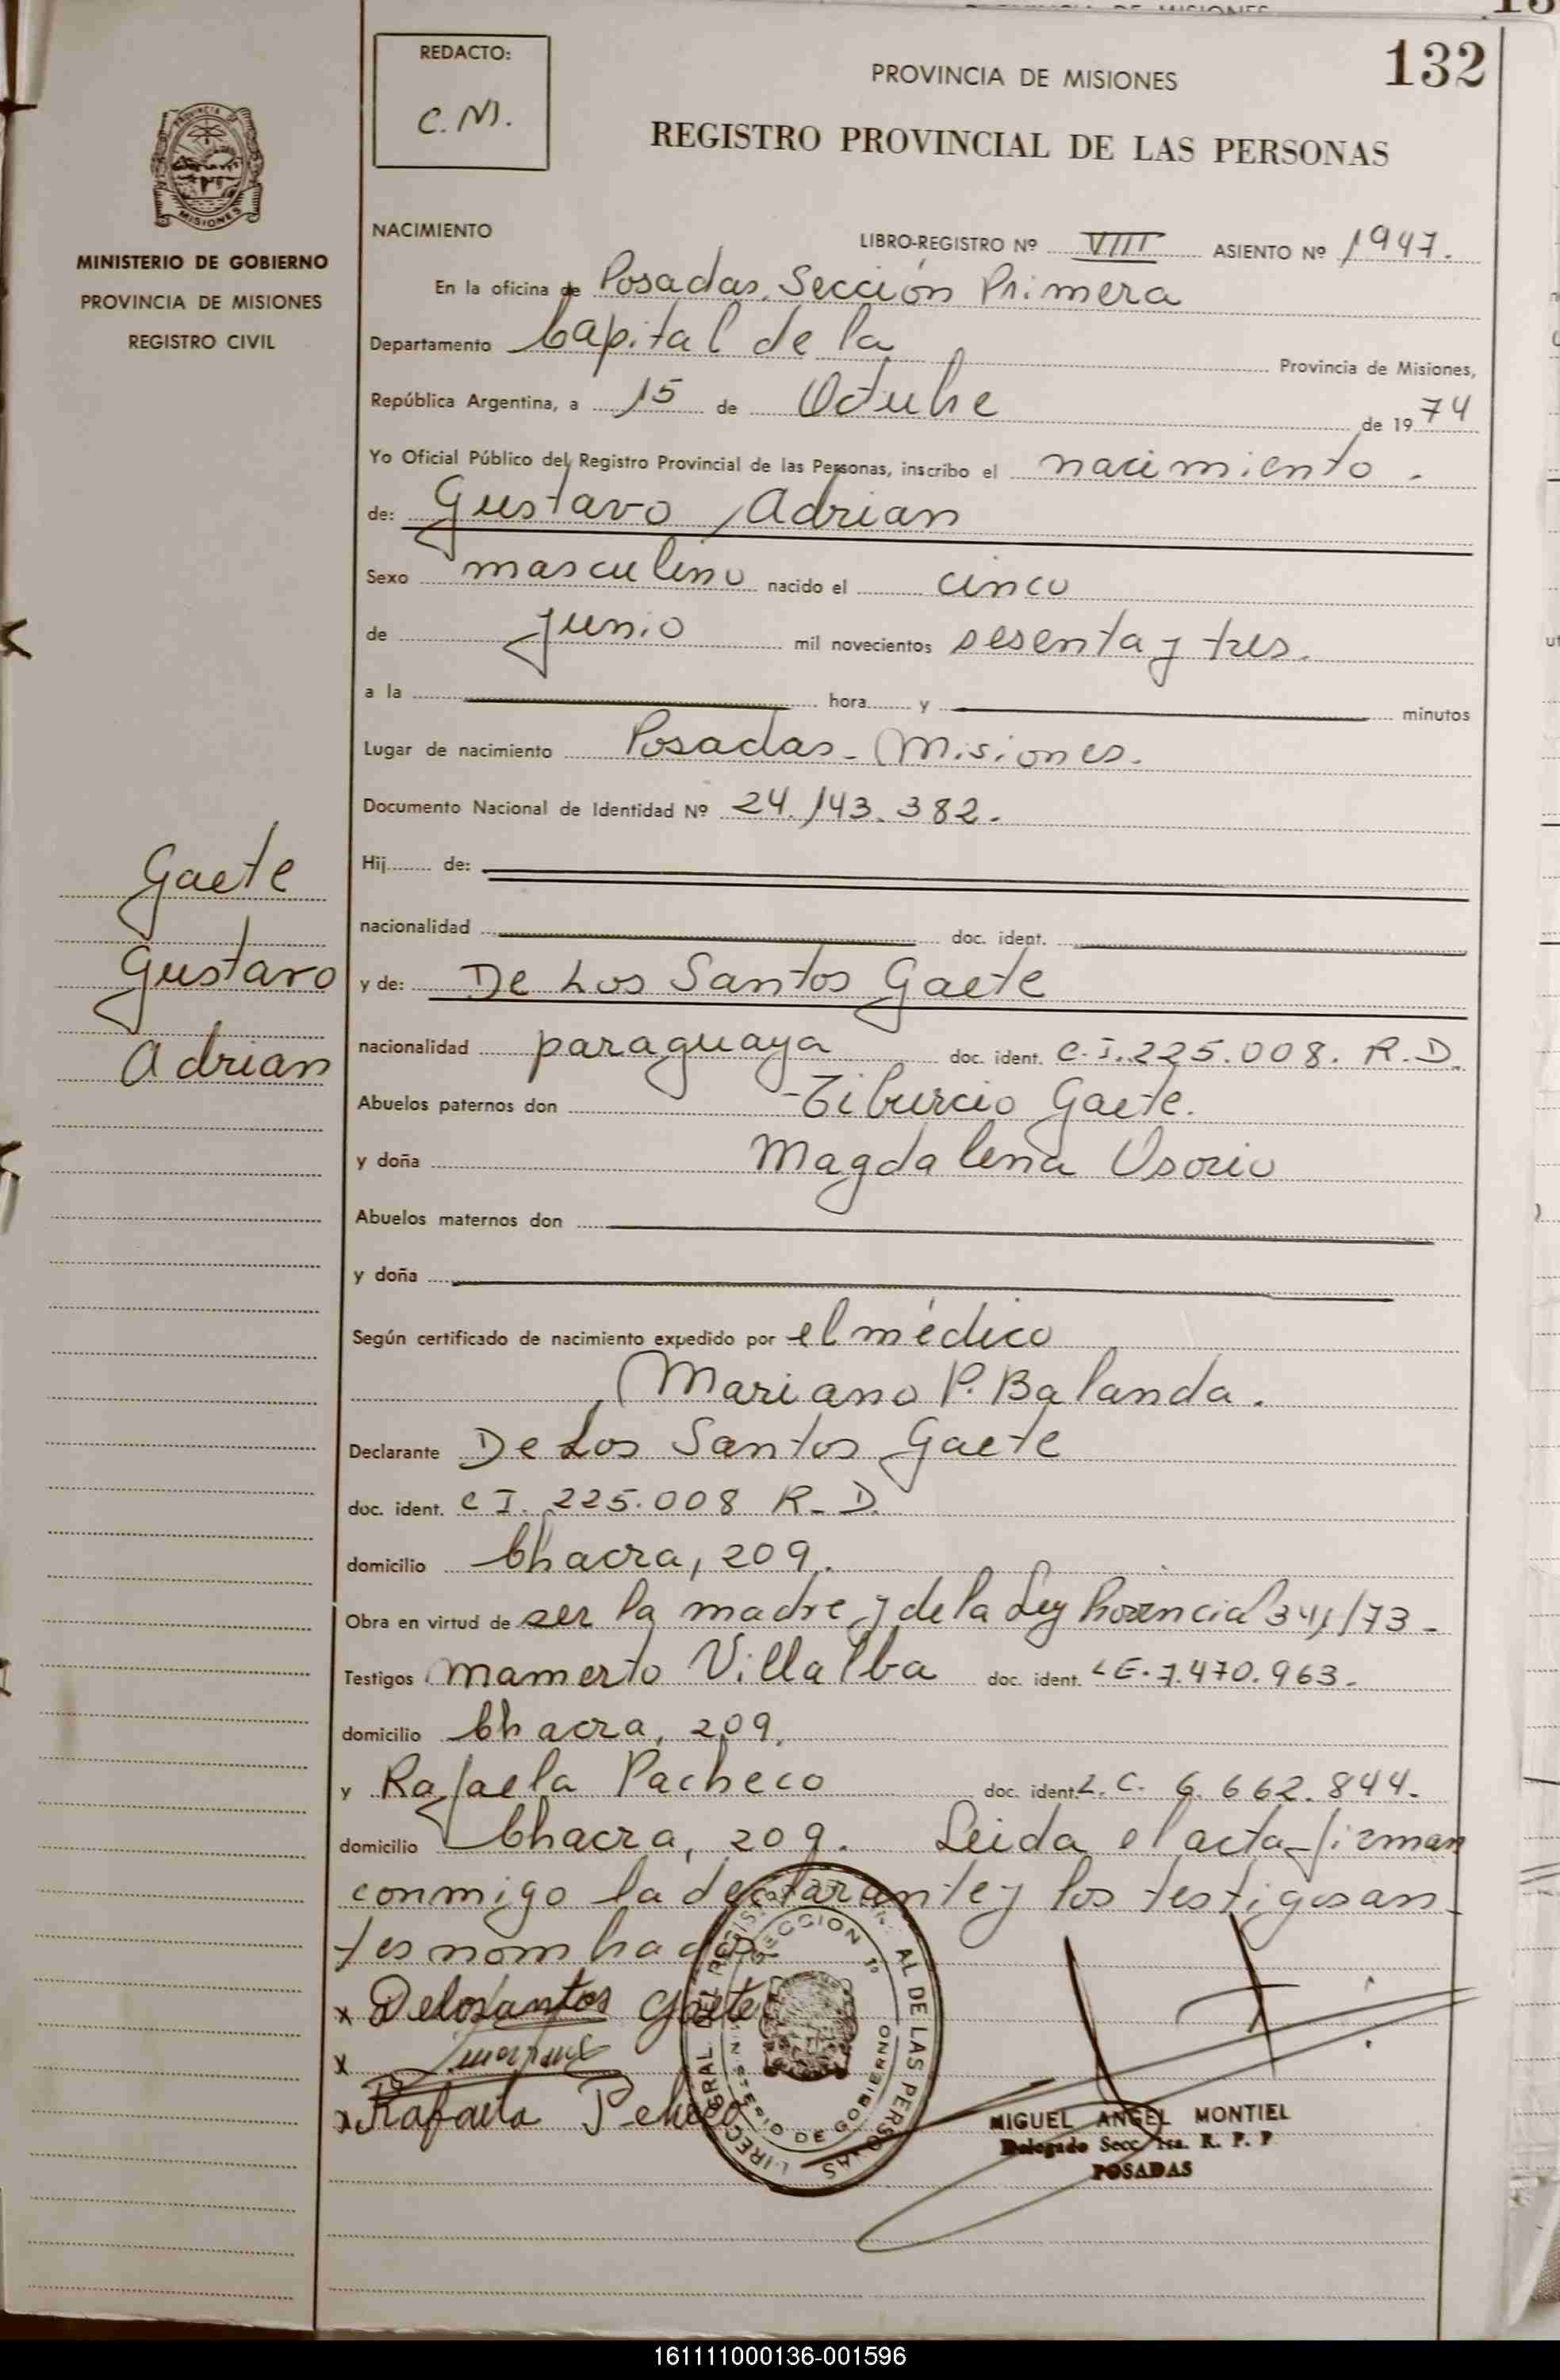 132
REDACTO:
C. M.
PROVINCIA DE MISIONES
REGISTRO PROVINCIAL DE LAS PERSONAS
PROVINCIA DE MISIONES
MINISTERIO DE GOBIERNO
PROVINCIA DE MISIONES
REGISTRO CIVIL
NACIMIENTO
LIBRO-REGISTRO Nº VIII ASIENTO Nº 1947.
En la oficina de Posadas, Sección Primera
Departamento Capital de la Provincia de Misiones,
República Argentina, a 15 de Octubre de 1974
Yo Oficial Público del Registro Provincial de las Personas, inscribo el nacimiento.
de: Gustavo Adrian
Sexo masculino nacido el cinco
de junio mil novecientos sesenta y tres.
a la hora y minutos
Lugar de nacimiento Posadas - Misiones.
Documento Nacional de Identidad Nº 24.143.382.
Hij de:
nacionalidad doc. ident.
y de: De Los Santos Gaete
nacionalidad paraguaya doc. ident. C.I. 225.008. R.D.
Abuelos paternos don Tiburcio Gaete.
y doña Magdalena Osorio
Abuelos maternos don
y doña
Según certificado de nacimiento expedido por el médico
Mariano P. Balanda.
Declarante De Los Santos Gaete
doc. ident. C I. 225.008 R. D.
domicilio Chacra, 209.
Obra en virtud de ser la madre y de la Ley Provincial /73 -
Testigos Mamerto Villalba doc. ident. L E. 7.470.963.
domicilio Chacra, 209.
y Rafaela Pacheco doc. ident. L. C. 6.662.844.
domicilio Chacra, 209. Leida el acta firman
conmigo la declarante y los testigos an
tes nombrados.
x Delosantos Gaete
x
x Rafaela Pcheco
Gaete
Gustavo
Adrian
SECCION 1º
AL DE LAS PERSONAS
MINISTERIO DE GOBIERNO
MIGUEL ANGEL MONTIEL
Delegado Secc. 1ra. R. P. P
POSADAS
161111000136-001596